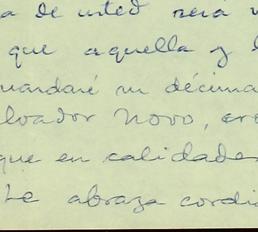 a de usted será
que aquella y l
uardaré su décima
lvador Novo, er
que en calidade
Le abraza cordi